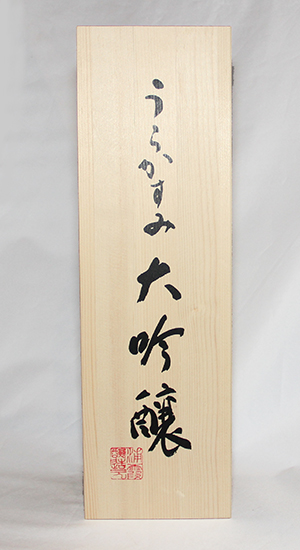 うらかすみ大吟醸